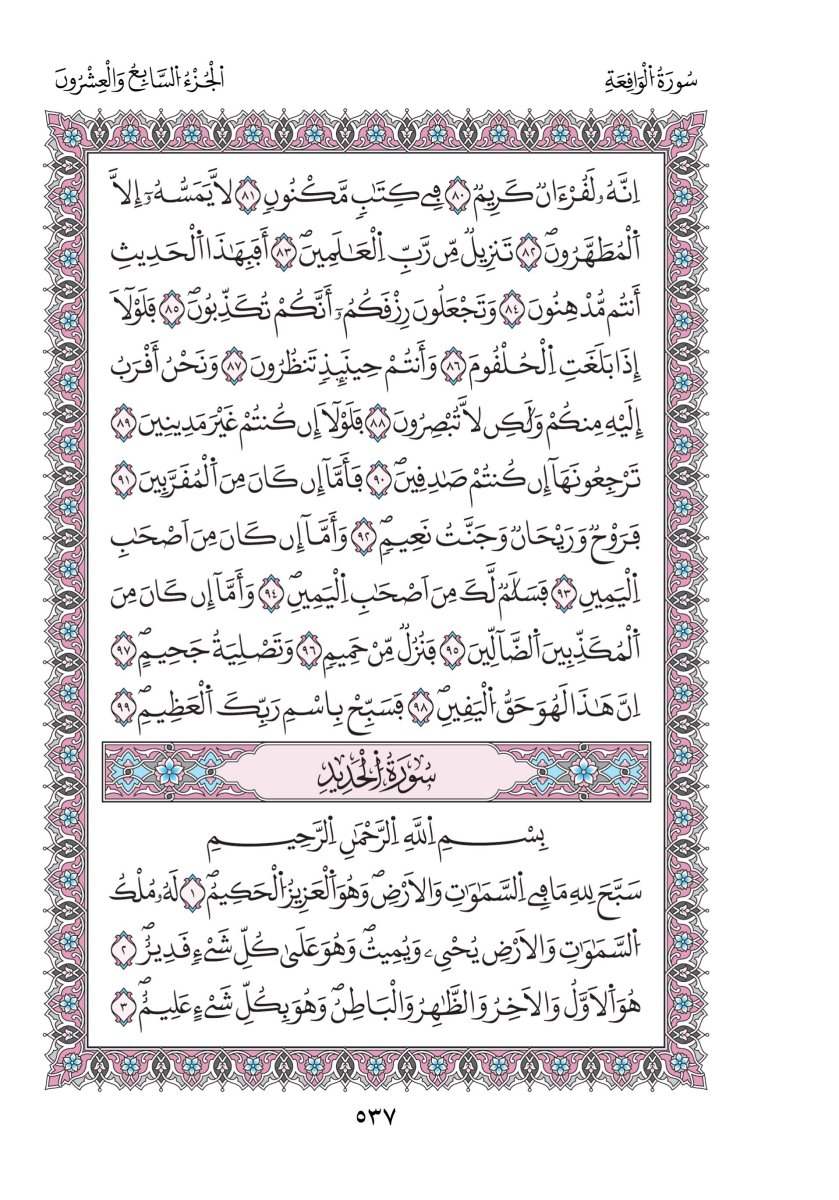 سُورَةُ اُ۬لْوَاقِعَةِ
اَ۬لْجُزْءُ اُ۬لسَّابِعُ وَالْعِشْرُونَ
اِنَّهُۥ لَقُرْءَانٞ كَرِيمٞ ٨٠ فِے كِتَٰبٖ مَّكْنُونٖ ٨١ لَّا يَمَسُّهُۥٓ إِلَّا
اَ۬لْمُطَهَّرُونَۖ ٨٢ تَنزِيلٞ مِّن رَّبِّ اِ۬لْعَٰلَمِينَۖ ٨٣ أَفَبِهَٰذَا اَ۬لْحَدِيثِ
أَنتُم مُّدْهِنُونَ ٨٤ وَتَجْعَلُونَ رِزْقَكُمُۥٓ أَنَّكُمْ تُكَذِّبُونَۖ ٨٥ فَلَوْلَآ
إِذَا بَلَغَتِ اِ۬لْحُلْقُومَ ٨٦ وَأَنتُمْ حِينَئِذٖ تَنظُرُونَ ٨٧ وَنَحْنُ أَقْرَبُ
إِلَيْهِ مِنكُمْ وَلَٰكِن لَّا تُبْصِرُونَ ٨٨ فَلَوْلَآ إِن كُنتُمْ غَيْرَ مَدِينِينَ ٨٩
تَرْجِعُونَهَآ إِن كُنتُمْ صَٰدِقِينَۖ ٩٠ فَأَمَّآ إِن كَانَ مِنَ اَ۬لْمُقَرَّبِينَ ٩١
فَرَوْحٞ وَرَيْحَانٞ وَجَنَّتُ نَعِيمٖۖ ٩٢ وَأَمَّآ إِن كَانَ مِنَ اَصْحَٰبِ
اِ۬لْيَمِينِ ٩٣ فَسَلَٰمٞ لَّكَ مِنَ اَصْحَٰبِ اِ۬لْيَمِينِۖ ٩٤ وَأَمَّآ إِن كَانَ مِنَ
اَ۬لْمُكَذِّبِينَ اَ۬لضَّآلِّينَ ٩٥ فَنُزُلٞ مِّنْ حَمِيمٖ ٩٦ وَتَصْلِيَةُ جَحِيمٍۖ ٩٧
اِنَّ هَٰذَا لَهُوَ حَقُّ اُ۬لْيَقِينِۖ ٩٨ فَسَبِّحْ بِاسْمِ رَبِّكَ اَ۬لْعَظِيمِۖ ٩٩
سُورَةُ اُ۬لْحَدِيدِ
بِسْمِ اِ۬للَّهِ اِ۬لرَّحْمَٰنِ اِ۬لرَّحِيمِ
سَبَّحَ لِلهِ مَا فِے اِ۬لسَّمَٰوَٰتِ وَالَارْضِۖ وَهُوَ اَ۬لْعَزِيزُ اُ۬لْحَكِيمُۖ ١ لَهُۥ مُلْكُ
اُ۬لسَّمَٰوَٰتِ وَالَارْضِ يُحْيِۦ وَيُمِيتُۖ وَهُوَ عَلَىٰ كُلِّ شَےْءٖ قَدِيرٌۖ ٢
هُوَ اَ۬لَاوَّلُ وَالَاخِرُ وَالظَّٰهِرُ وَالْبَاطِنُۖ وَهُوَ بِكُلِّ شَےْءٍ عَلِيمٌۖ ٣
٥٣٧